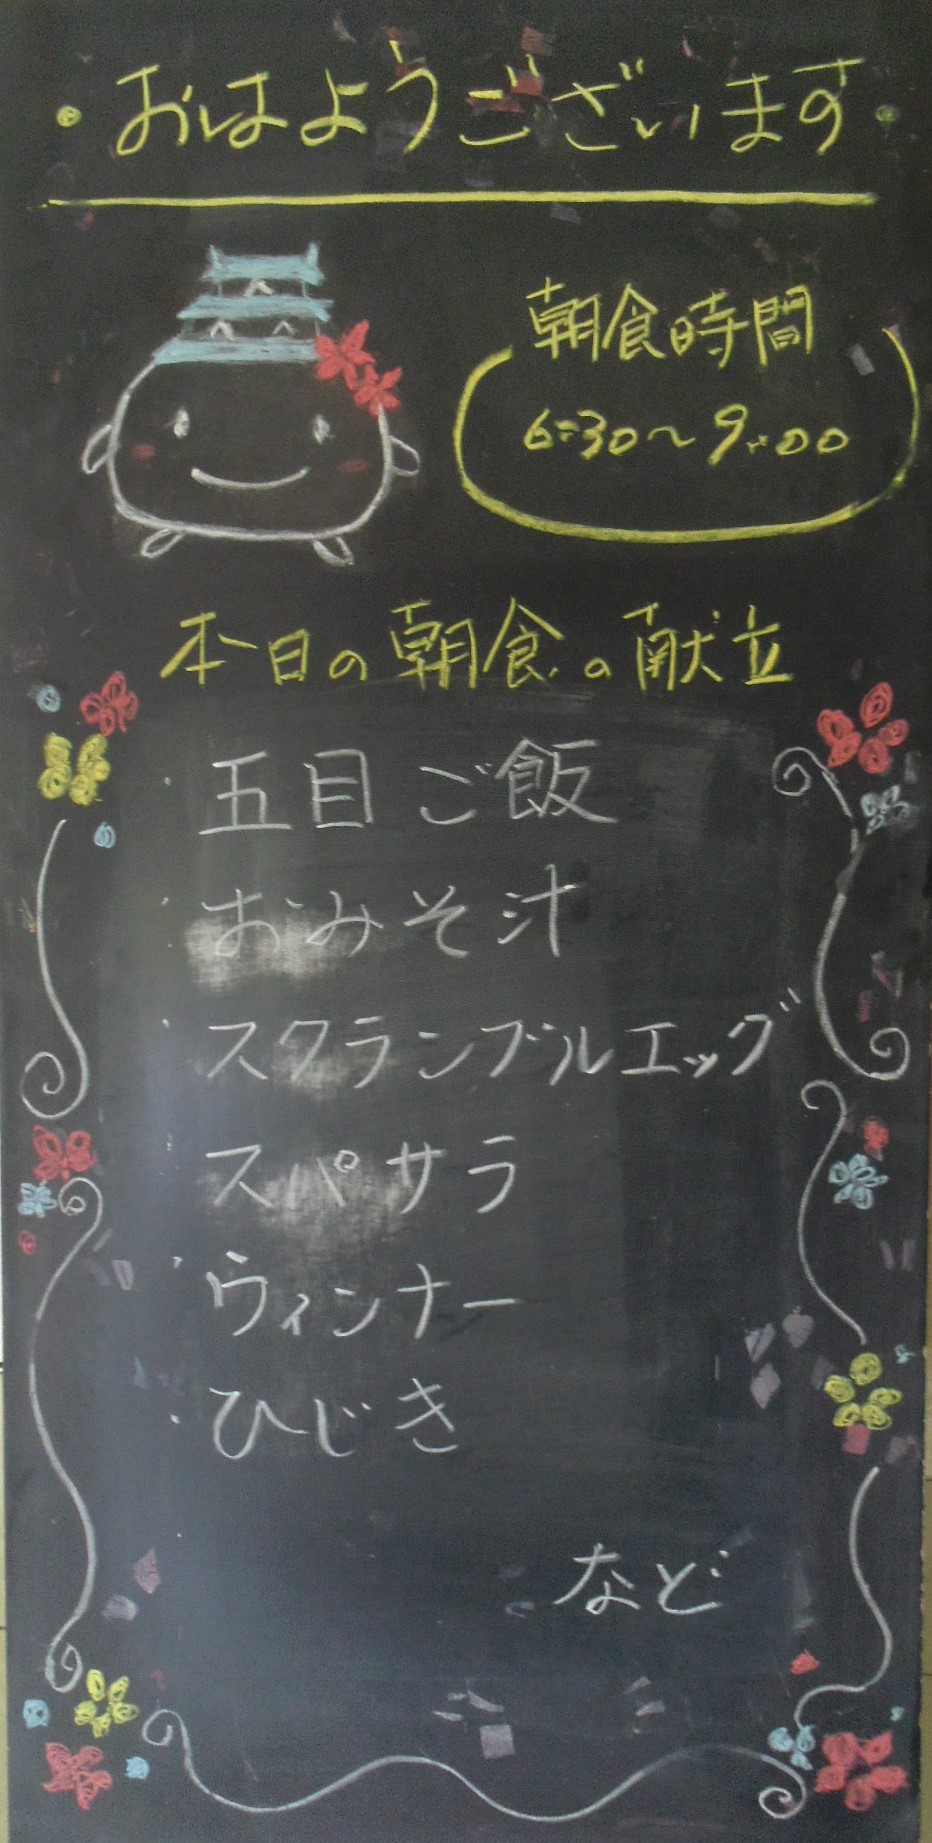 ・おはようございます・
朝食時間
6:30〜9:00
本日の朝食の献立
・五目ご飯
・おみそ汁
・スクランブルエッグ
・スパサラ
・ウィンナー
・ひじき
など